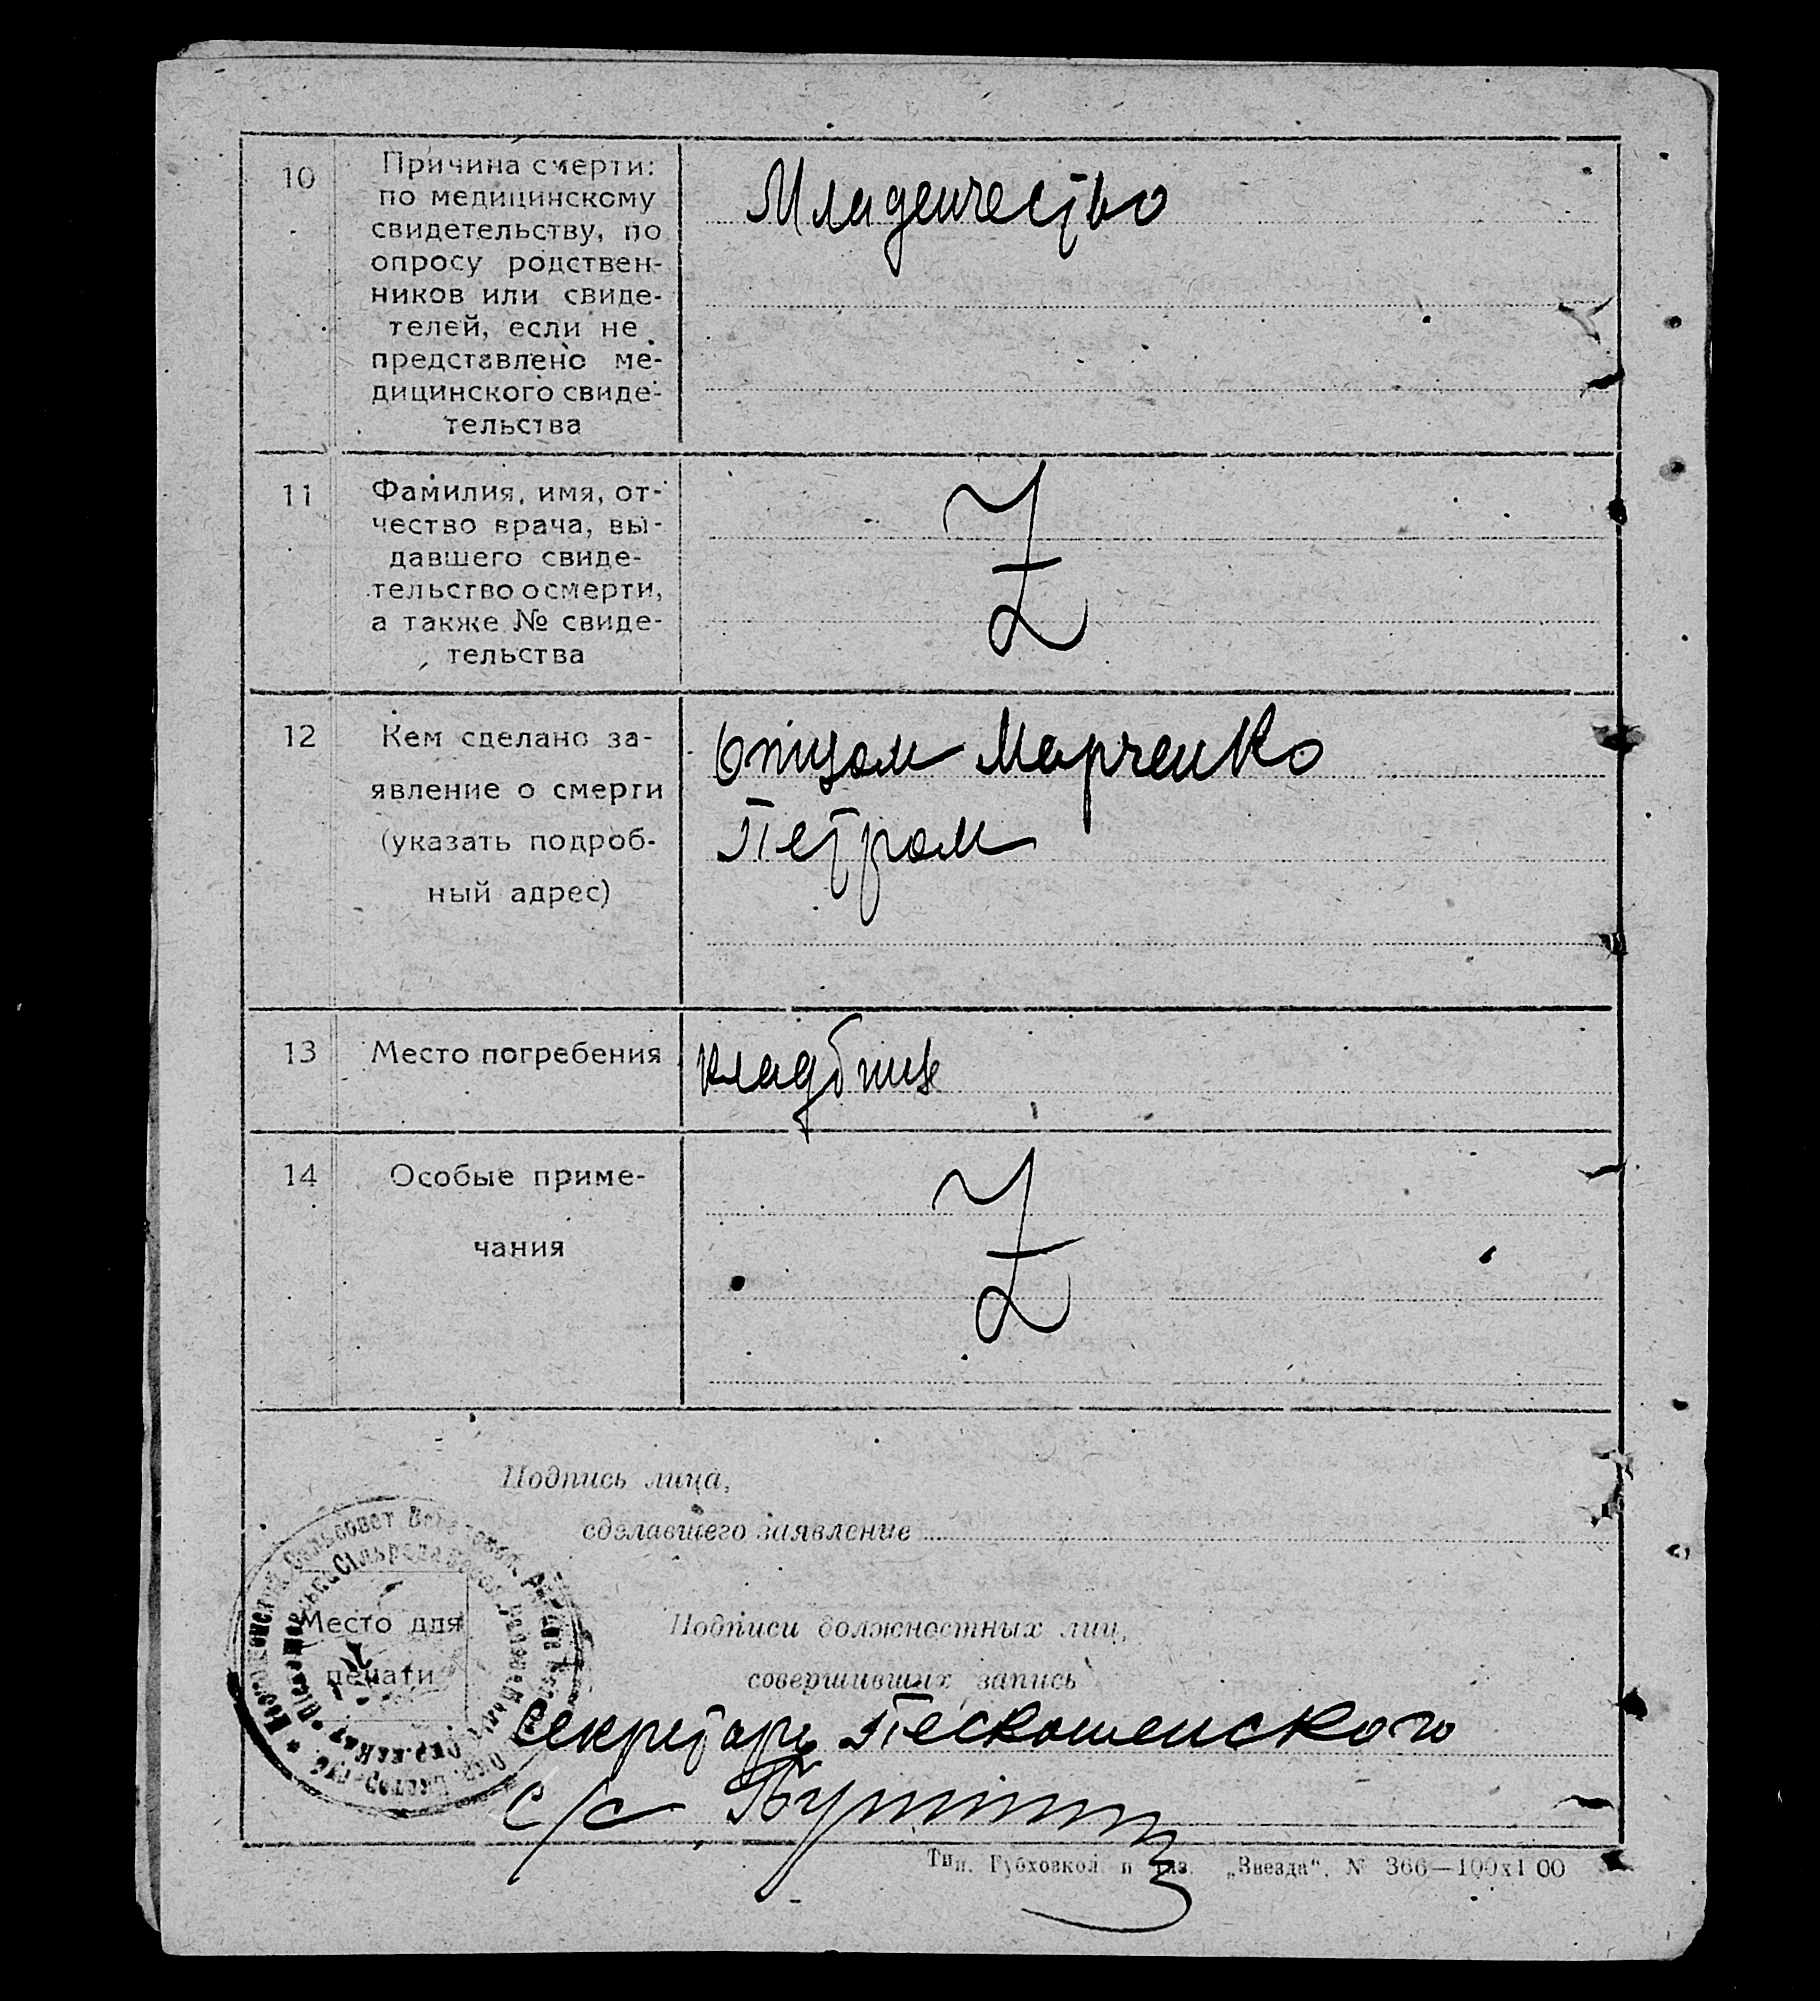 10
Причина смерти:
по медицинскому
свидетельству, по
опросу родствен-
ников или свиде-
телей, если не
представлено ме-
дицинского свиде-
тельства
Младенчество
11
Фамилия, имя, от-
чество врача, вы-
давшего свиде-
тельство о смерти,
а также № свиде-
тельства
Z
12
Кем сделано за-
явление о смерти
(указать подроб-
ный адрес)
Отцом Марченко
Петром
13
Место погребения
кладбище
14
Особые приме-
чания
Z
Подпись лица,
сделавшего заявление
Место для
печати
Сельсовет
Подписи должностных лиц,
совершивших запись
Секретарь
с/с
Тип. Губховкой п газ. „Звезда“, № 366—100х1 00